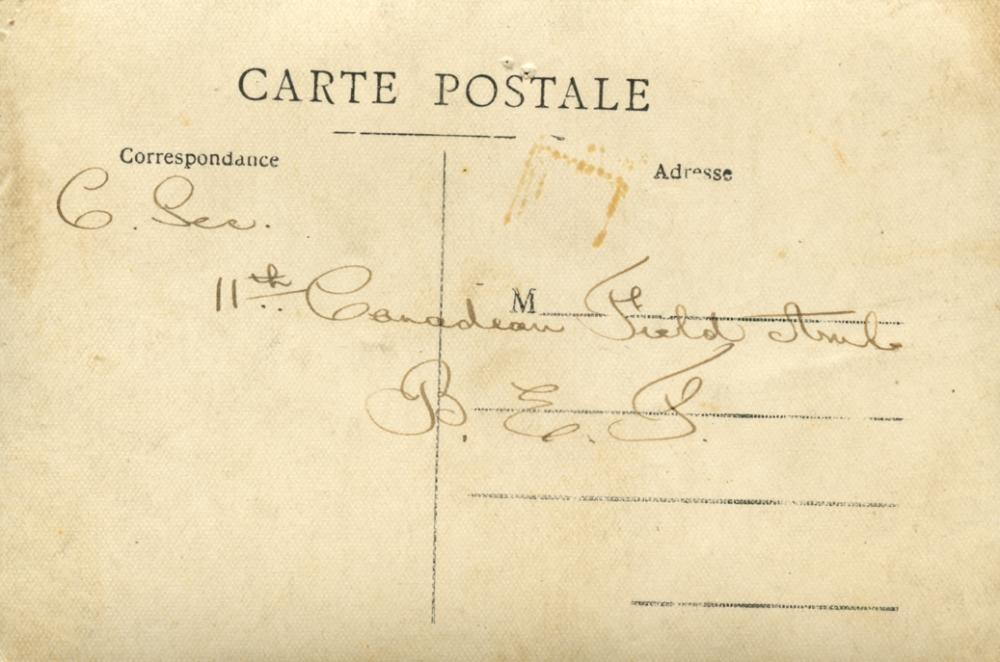 CARTE POSTALE
Correspondance
Adresse
C. Sec.
11th Canadian Field Amb.
M
B. E. F.